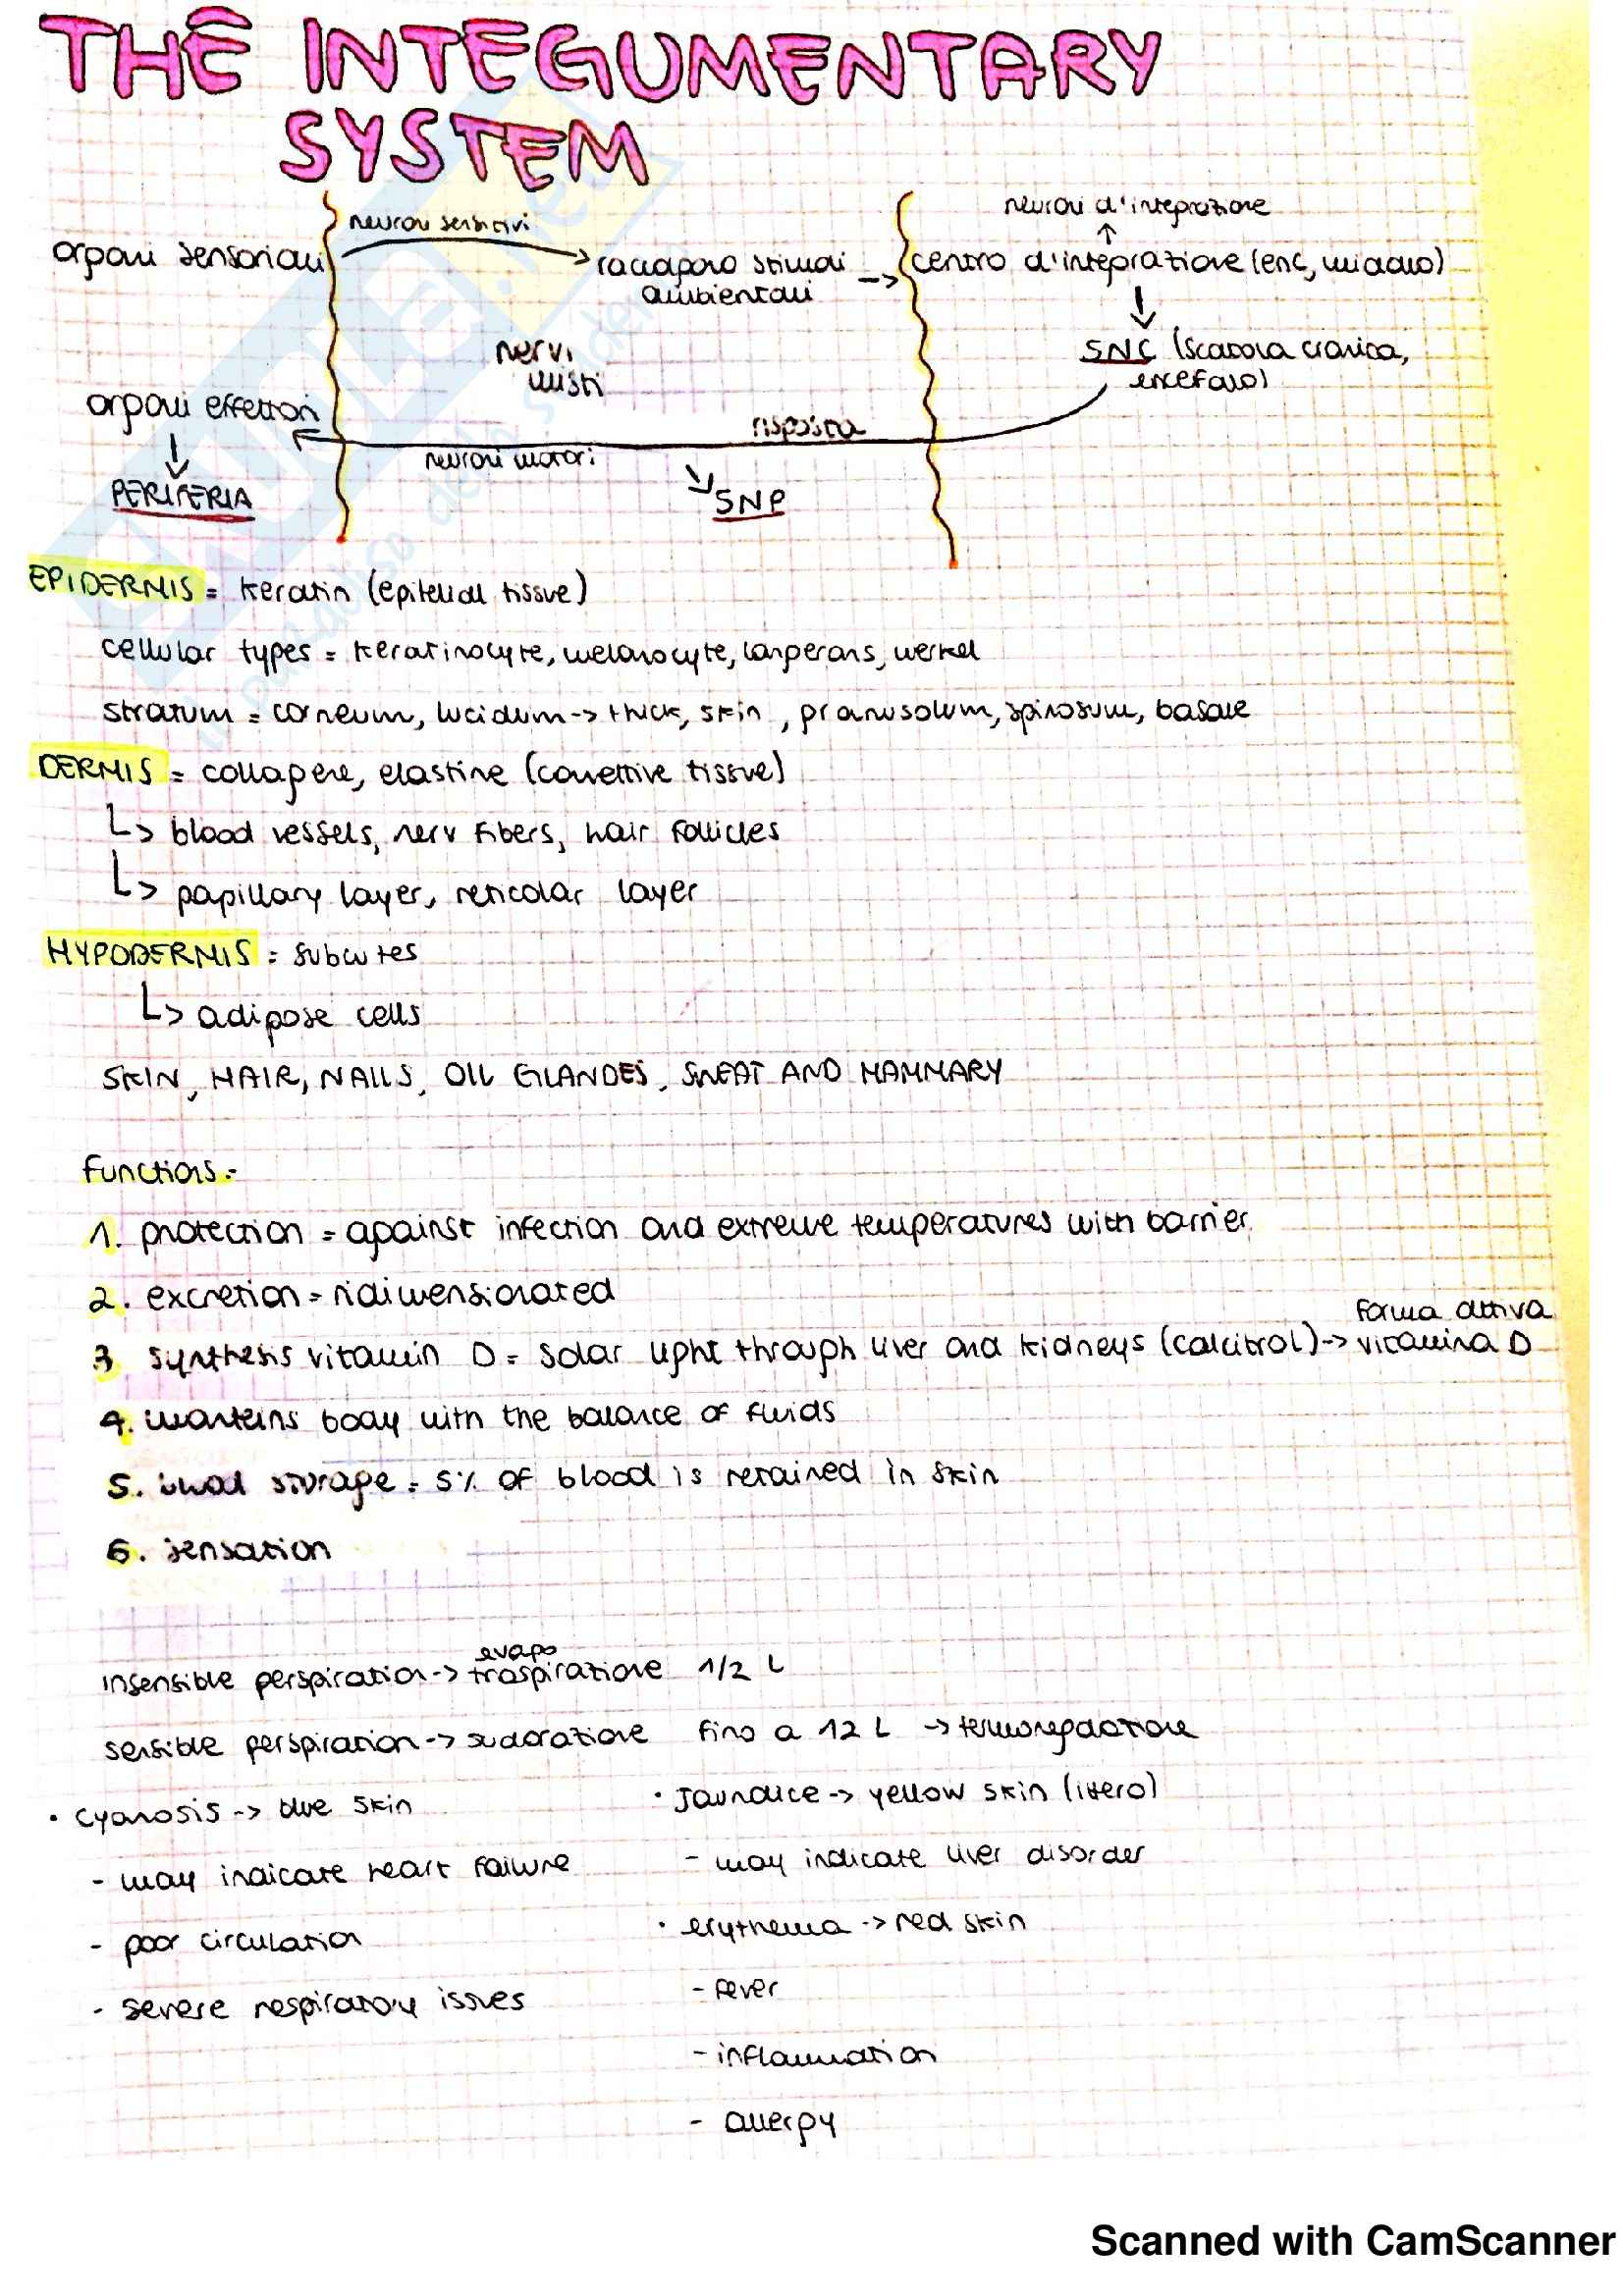 THE INTEGUMENTARY
SYSTEM
neuroni sensitivi
neuroni d'integrazione
organi sensoriali
raccolgono stimoli
ambientali
centro d'integrazione (enc, midollo)
nervi
misti
SNC (scatola cranica,
encefalo)
organi effettori
risposta
neuroni motori
PERIFERIA
SNP
EPIDERMIS = keratin (epitelial tissue)
cellular types = keratinocyte, melanocyte, langerans, merkel
stratum = corneum, lucidum -> thick, skin, granusolum, spinosum, basale
DERMIS = collagene, elastine (connettive tissue)
blood vessels, nerv fibers, hair follicles
papillary layer, reticolar layer
HYPODERMIS = subcutes
adipose cells
SKIN, HAIR, NAILS, OIL GLANDES, SWEAT AND MAMMARY
Functions:
1. protection = against infection and extreme temperatures with barrier
2. excretion = ridimensionated
forma attiva
3 synthesis vitamin D = solar light through liver and kidneys (calcitrol) -> vitamina D
4. manteins body with the balance of fluids
5. blood storage = 5% of blood is retained in skin
6. sensation
evapo
insensible perspiration -> traspirazione 1/2 L
sensible perspiration -> sudorazione fino a 12 L -> termoregolazione
• cyanosis -> blue skin
• Jaundice -> yellow skin (ittero)
- may indicate heart failure
- may indicate liver disorder
- poor circulation
• erythema -> red skin
- severe respiratory issues
- fever
- inflammation
- allergy
Scanned with CamScanner